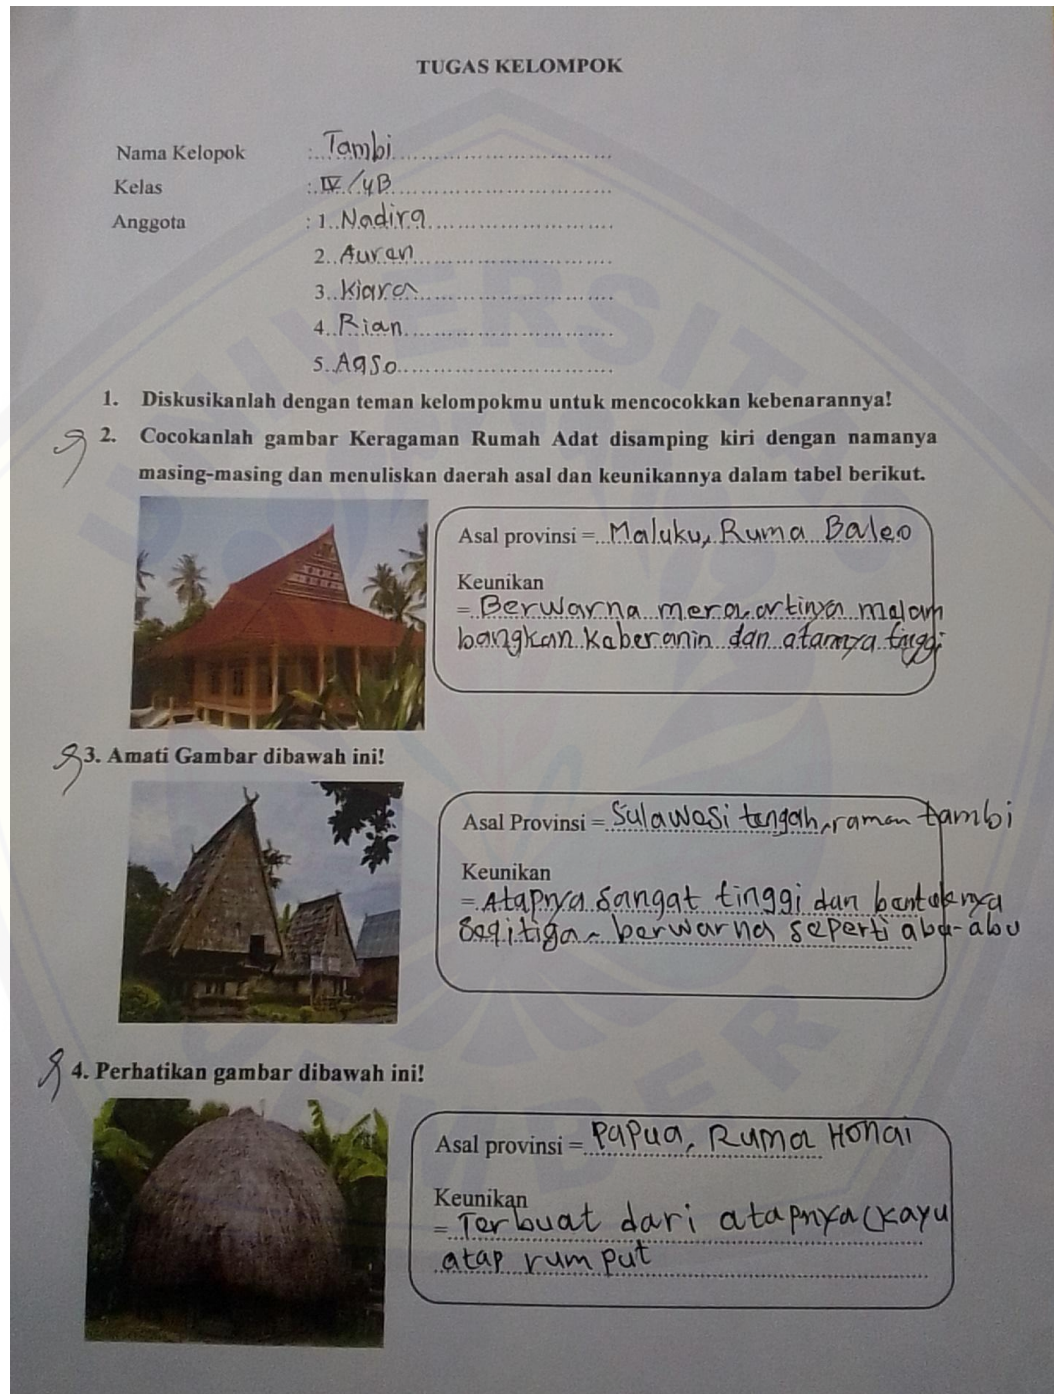 TUGAS KELOMPOK
Nama Kelopok : Tambi
Kelas : IV/4B
Anggota : 1. Nadira
2. Auran
3. Kiara
4. Rian
5. Aqso
1. Diskusikanlah dengan teman kelompokmu untuk mencocokkan kebenarannya!
2. Cocokanlah gambar Keragaman Rumah Adat disamping kiri dengan namanya
masing-masing dan menuliskan daerah asal dan keunikannya dalam tabel berikut.
Asal provinsi = Maluku, Ruma Baleo
Keunikan
= Berwarna mera artinya malam
bangkan Kaberanin dan atannya tinggi
3. Amati Gambar dibawah ini!
Asal Provinsi = Sulawasi tengah, raman tambi
Keunikan
= Atapnya sangat tinggi dan bantuknya
Segitiga - berwarna seperti abu-abu
4. Perhatikan gambar dibawah ini!
Asal provinsi = Papua, Ruma Honai
Keunikan
= Terbuat dari atapnya (kayu
atap rumput
UNIVERSITAS JEMBER